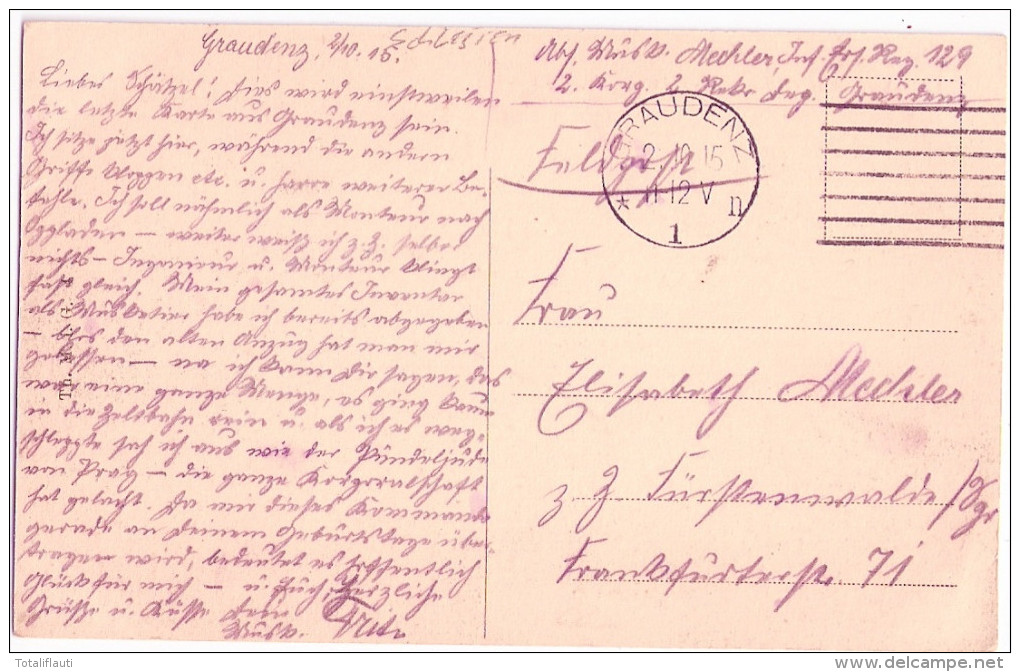 Graudenz, 2/10. 15.
Liebes Schätzel! Dies wird einstweilen
die letzte Karte aus Graudenz sein.
Ich sitze jetzt hier, während die andern
Griffe kloppen etc. u. harre weiterer Be-
fehle. Ich soll nähmlich als Monteur nach
Opladen – weiter weiß ich z. Z. selbst
nichts – Ingenieur u. Monteur klingt
fast gleich. Mein gesamtes Inventar
als Musketier habe ich bereits abgegeben
– blos den alten Anzug hat man mir
gelassen – na ich kann Dir sagen, das
war eine ganze Menge, es ging kaum
in die Zeltbahn rein u. als ich es weg-
schleppte sah ich aus wie der Pündeljude
von Prag – die ganze Korporalschaft
hat gelacht. Da mir dieses Kommando
gerade an Deinem Geburtstage über-
tragen wird, bedeutet es hoffentlich
Glück für mich – u. Euch. Herzliche
Grüße u. Küsse Dein
Musk. Fritz
Th. G.
Abs. Musk. Mechler, Inf. Ers. Reg. 129
2. Korp. 2 Rekr Dep. Graudenz
Feldpost
GRAUDENZ
2.10.15
11-12 V
* 1 n
Frau
Elisabeth Mechler
z Z Fürstenwalde/Spr
Frankfurterstr. 71
Totaliflauti
delcampe.net